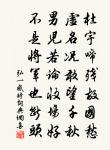 杜宇啼殘故國愁
虛名況敢望千秋
男兒若論收場好
不是將軍也斷頭
弘一戒诗词典调亭